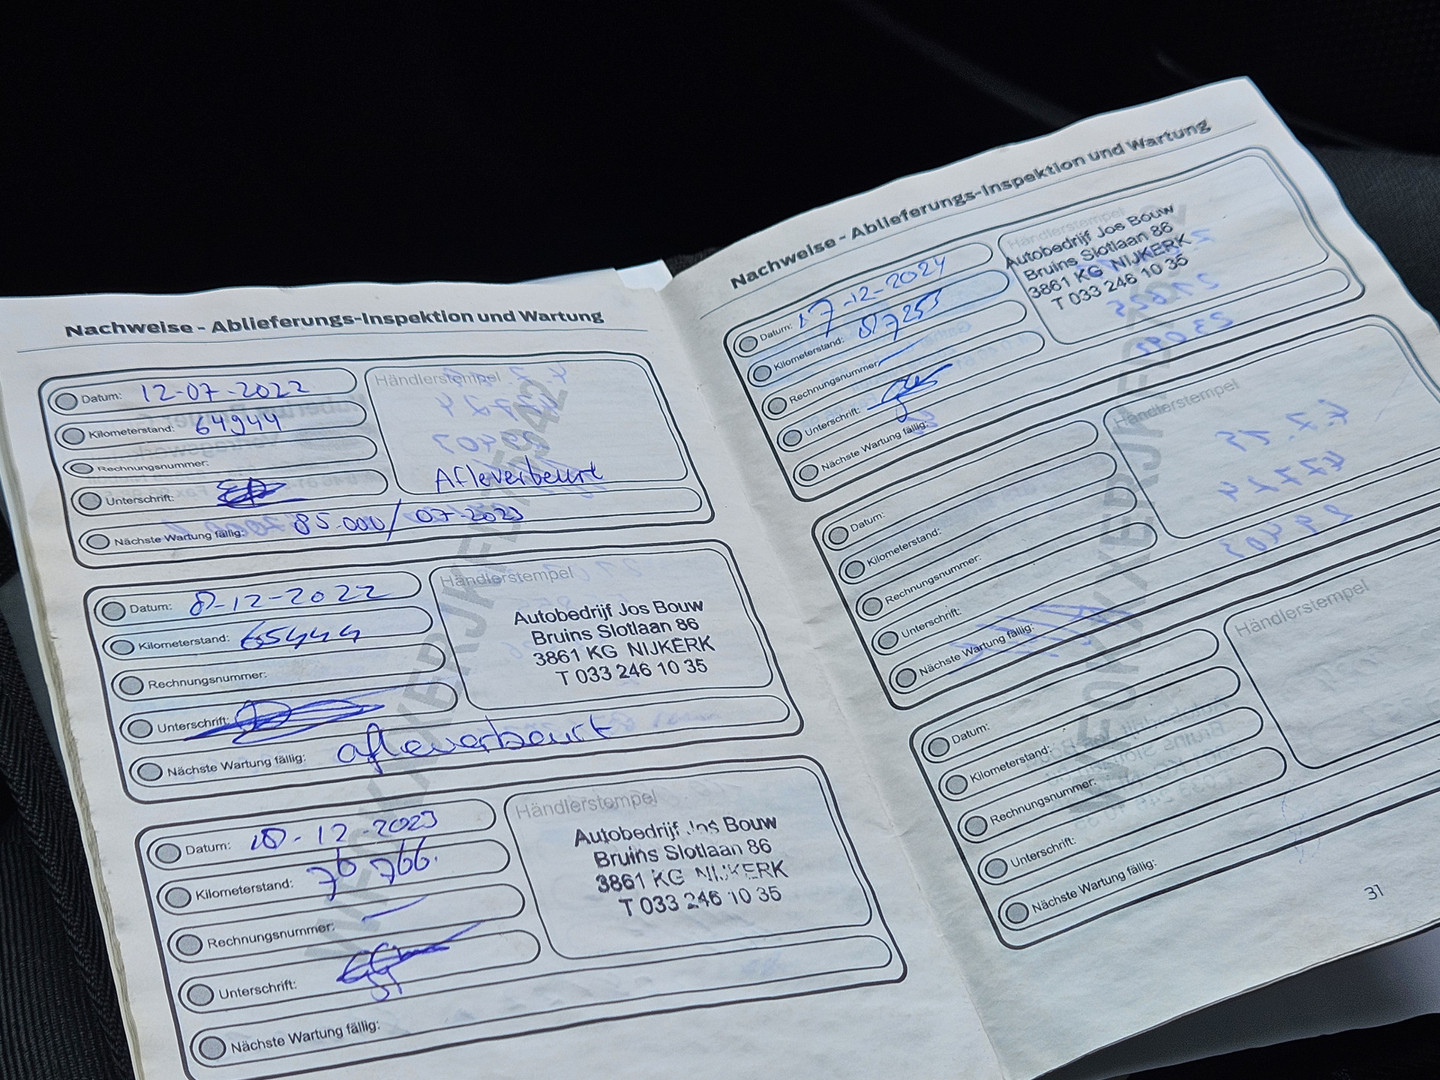 Nachweise - Ablieferungs-Inspektion und Wartung
Datum: 12-07-2022
Kilometerstand: 64944
Rechnungsnummer:
Unterschrift:
Händlerstempel
Afleverbeurt
Nächste Wartung fällig: 85.000/ 07-2023
Datum: 8-12-2022
Kilometerstand: 65444
Rechnungsnummer:
Unterschrift:
Händlerstempel
Autobedrijf Jos Bouw
Bruins Slotlaan 86
3861 KG NIJKERK
T 033 246 10 35
Nächste Wartung fällig: afleverbeurt
Datum: 18-12-2023
Kilometerstand: 76 766.
Rechnungsnummer:
Unterschrift:
Händlerstempel
Autobedrijf Jos Bouw
Bruins Slotlaan 86
3861 KG NIJKERK
T 033 246 10 35
Nächste Wartung fällig:
Nachweise - Ablieferungs-Inspektion und Wartung
Datum: 17-12-2024
Kilometerstand: 87255
Rechnungsnummer:
Unterschrift:
Händlerstempel
Autobedrijf Jos Bouw
Bruins Slotlaan 86
3861 KG NIJKERK
T 033 246 10 35
Nächste Wartung fällig:
Datum:
Kilometerstand:
Rechnungsnummer:
Unterschrift:
Händlerstempel
Nächste Wartung fällig:
Datum:
Kilometerstand:
Rechnungsnummer:
Unterschrift:
Händlerstempel
Nächste Wartung fällig:
31